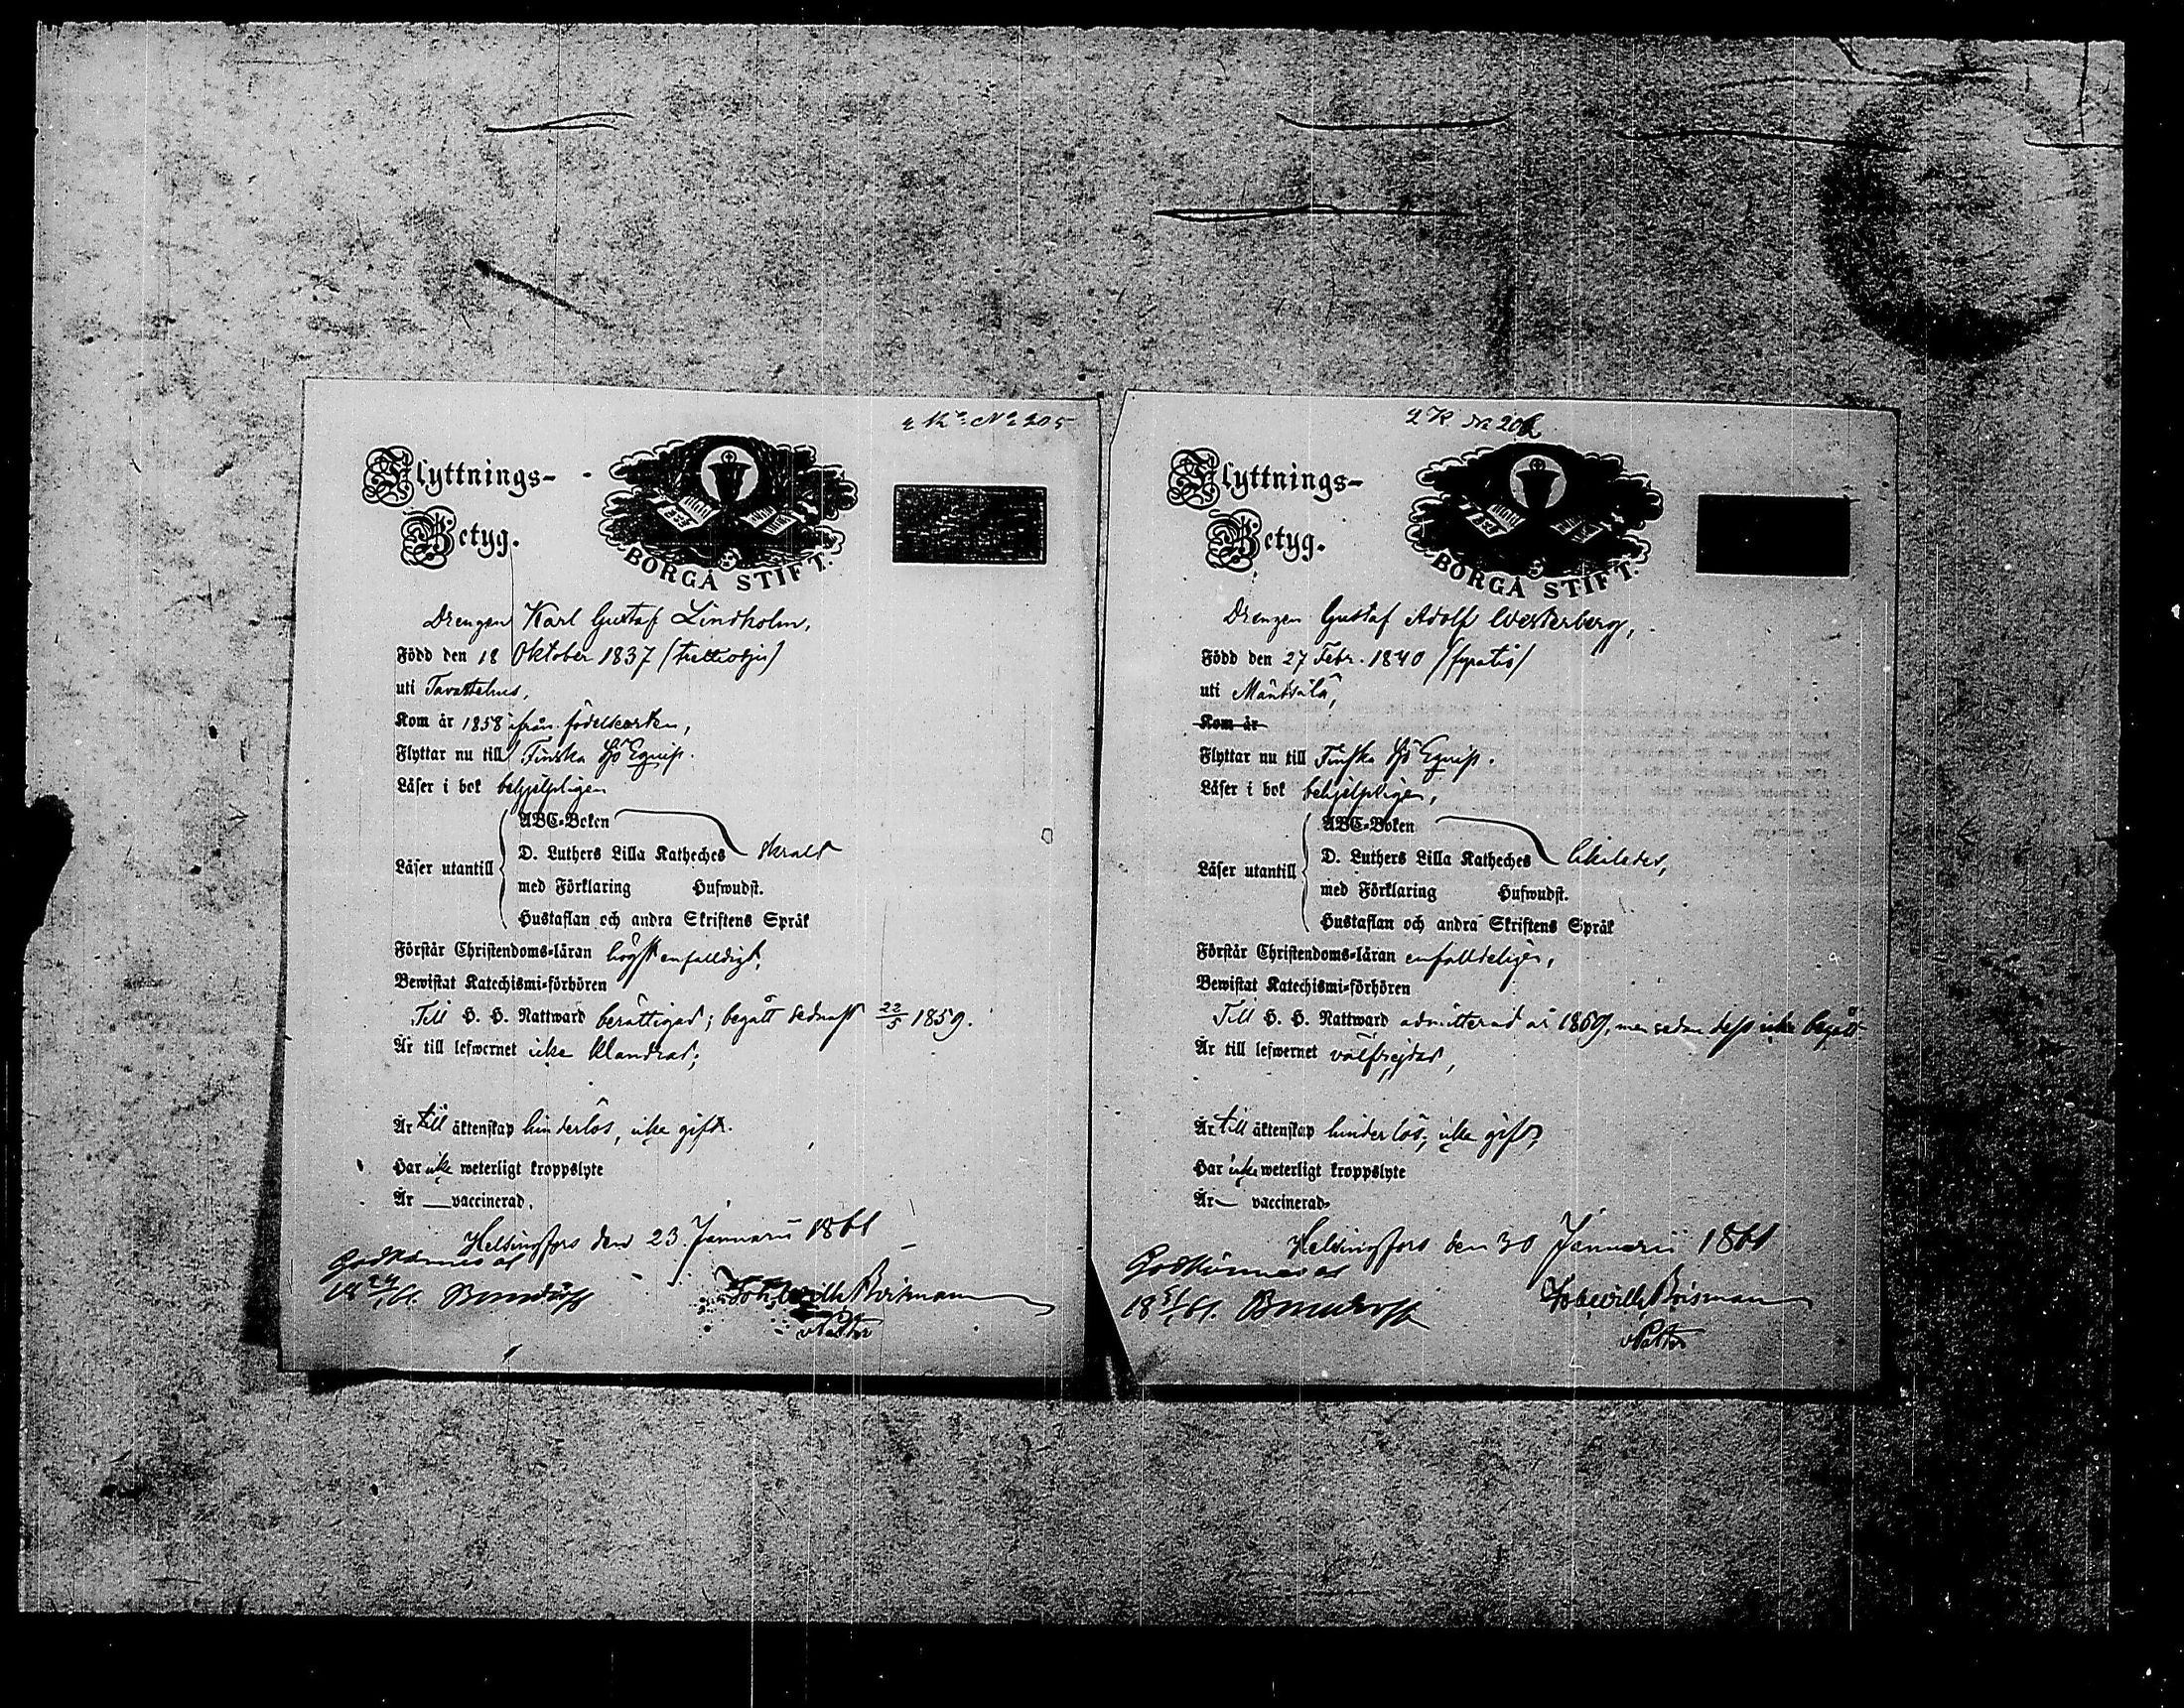 2 K. No 205
Flyttnings-
Betyg.
BORGÅ STIFT.
Drengen Karl Gustaf Lindholm,
Född den 18 Oktober 1837 (trettiosju)
uti Tavastehus,
Kom år 1858 ifrån födelseorten,
Flyttar nu till Finska Sjö Equip.
Läser i bok behjelpligen
ABC-Boken
D. Luthers Lilla Katheches skralt
Läser utantill
med Förklaring Hufwudst.
Hustaflan och andra Skriftens Språk
Förstår Christendoms-läran högst enfalldigt,
Bewistat Katechismi-förhören
Till H. H. Nattward berättigad; begått sednast 22/5 1859.
Är till lefwernet icke klandrad;
Är till äktenskap hinderlös, icke gift.
Har icke weterligt kroppslyte
Är — vaccinerad.
Helsingfors den 23 Januarii 1861
Godkännes af
18 24/1 61.
Joh Wilh Brisman
v Pastor
2 K No 206
Flyttnings-
Betyg.
BORGÅ STIFT.
Drengen Gustaf Adolf Westerberg,
Född den 27 Febr. 1840 (fyratio)
uti Mäntsälä,
Kom år
Flyttar nu till Finska Sjö Equip.
Läser i bok behjelpligen,
ABC-Boken
D. Luthers Lilla Katheches likaledes,
Läser utantill
med Förklaring Hufwudst.
Hustaflan och andra Skriftens Språk
Förstår Christendoms-läran enfalldeligen,
Bewistat Katechismi-förhören
Till H. H. Nattward admitterad år 1860, men sedan dess icke begått
Är till lefwernet välfrejdad,
Är till äktenskap hinderlös, icke gift,
Har icke weterligt kroppslyte
Är — vaccinerad
Helsingfors den 30 Januarii 1861
Godkännes af
18 31/1 61.
Joh Wilh Brisman
v Pastor